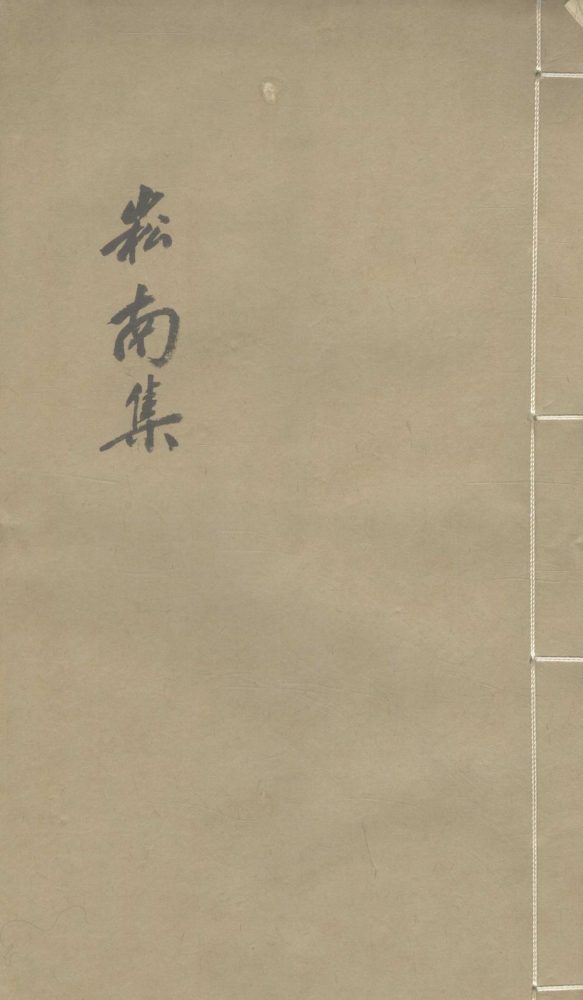 崧南集